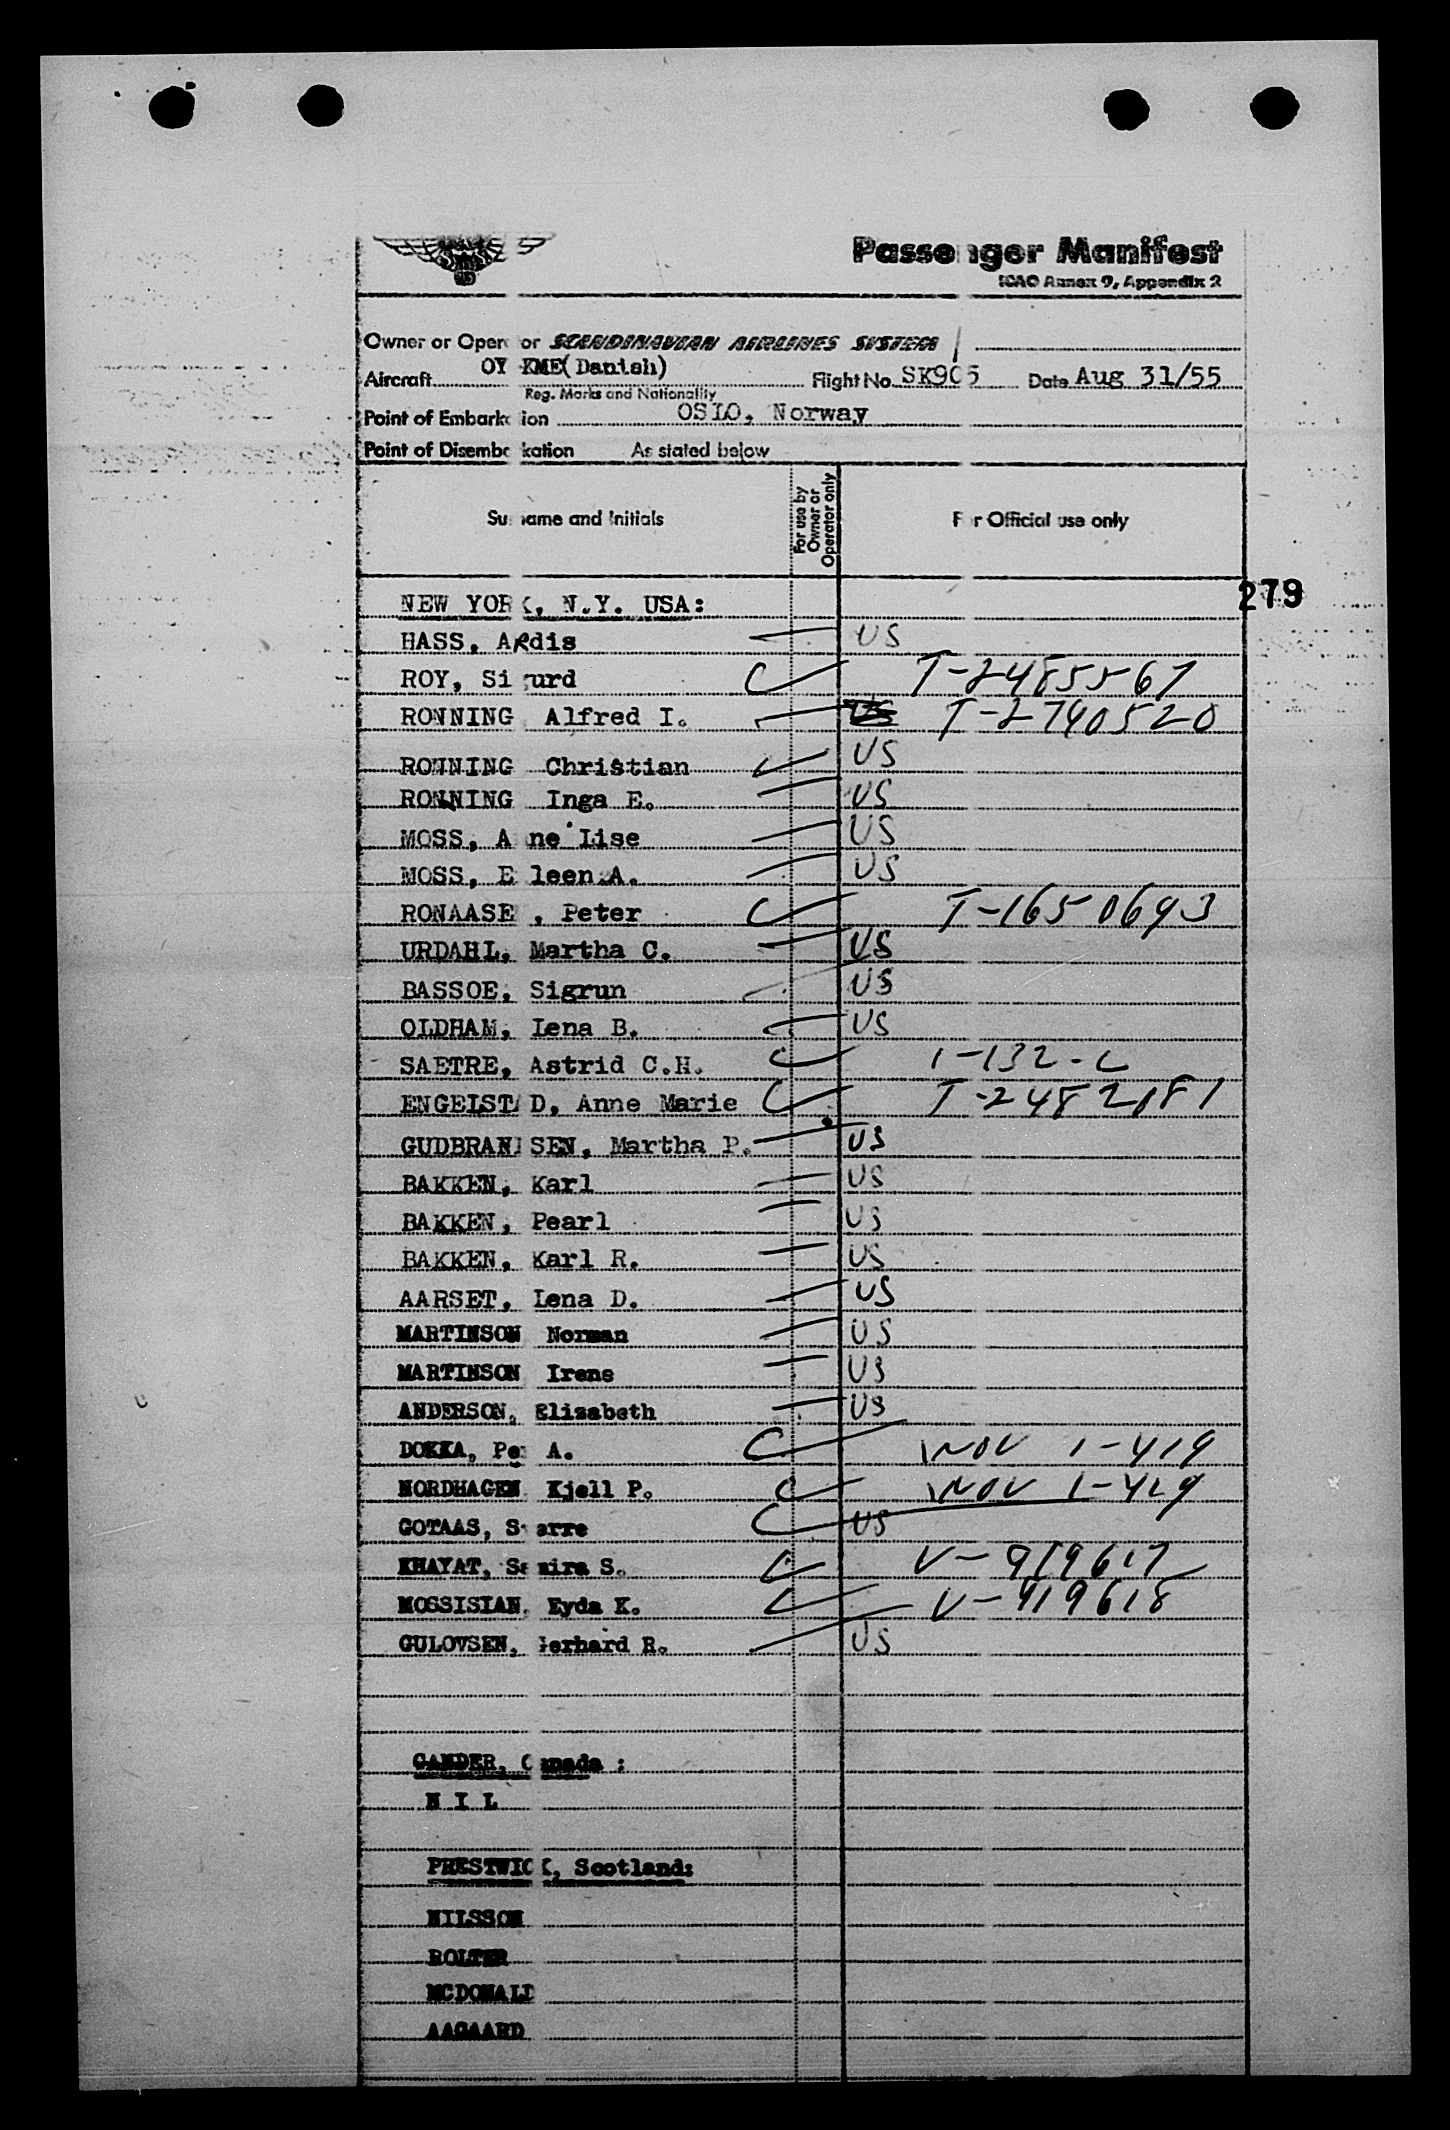 Passenger Manifest
ICAO Annex 9, Appendix 2
Owner or Operator SCANDINAVIAN AIRLINES SYSTEM
Aircraft OY KME(Danish) Flight No. SK905 Date Aug 31/55
Reg. Marks and Nationality
Point of Embarkation OSLO, Norway
Point of Disembarkation As stated below
Surname and Initials For use by Owner or Operator only For Official use only
NEW YORK, N.Y. USA: 279
HASS, Ardis US
ROY, Sigurd T-2485567
RONNING Alfred I. US T-2740520
RONNING Christian US
RONNING Inga E. US
MOSS, Anne Lise US
MOSS, Eileen A. US
RONAASE, Peter T-1650693
URDAHL, Martha C. US
BASSOE, Sigrun US
OLDHAM, Lena B. US
SAETRE, Astrid C.H. 1-132-C
ENGELSTAD, Anne Marie T-2482181
GUDBRANDSEN, Martha P. US
BAKKEN, Karl US
BAKKEN, Pearl US
BAKKEN, Karl R. US
AARSET, Lena D. US
MARTINSON Norman US
MARTINSON Irene US
ANDERSON, Elizabeth US
DOKKA, Per A. NOV 1-419
NORDHAGEN Kjell P. NOV 1-419
GOTAAS, Sverre US
KHAYAT, Samira S. V-919617
MOSSISIAN, Eyda K. V-919618
GULOVSEN, Gerhard R. US
GANDER, Canada :
N I L
PRESTWICK, Scotland:
NILSSON
BOLTER
MCDONALD
AAGAARD